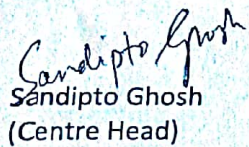 Sandipto Ghosh
Sandipto Ghosh
(Centre Head)